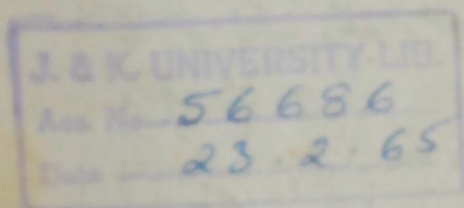 J. & K. UNIVERSITY LIB.
Acc. No 56686
Date 23.2.65